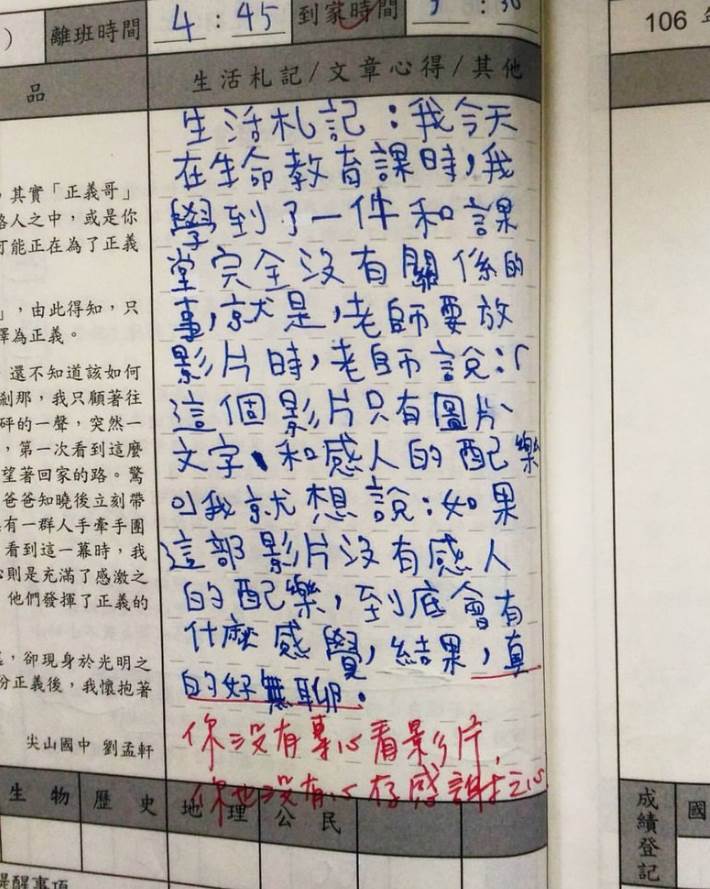 離班時間 4:45 到家時間
106
品
生活札記/文章心得/其他
生活札記:我今天
在生命教育課時,我
學到了一件和課
堂完全沒有關係的
事,就是,老師要放
影片時,老師說:「
這個影片只有圖片、
文字、和感人的配樂
」我就想說:如果
這部影片沒有感人
的配樂,到底會有
什麼感覺,結果,真
的好無聊。
你沒有專心看影片,
你也沒有心存感謝之心
,其實「正義哥」
路人之中,或是你
可能正在為了正義
」,由此得知,只
釋為正義。
還不知道該如何
剎那,我只顧著往
砰的一聲,突然一
,第一次看到這麼
望著回家的路。驚
爸爸知曉後立刻帶
有一群人手牽手圍
看到這一幕時,我
心則是充滿了感激之
他們發揮了正義的
,卻現身於光明之
份正義後,我懷抱著
尖山國中 劉孟軒
生物 歷史 地理 公民
成績登記
國
提醒事項